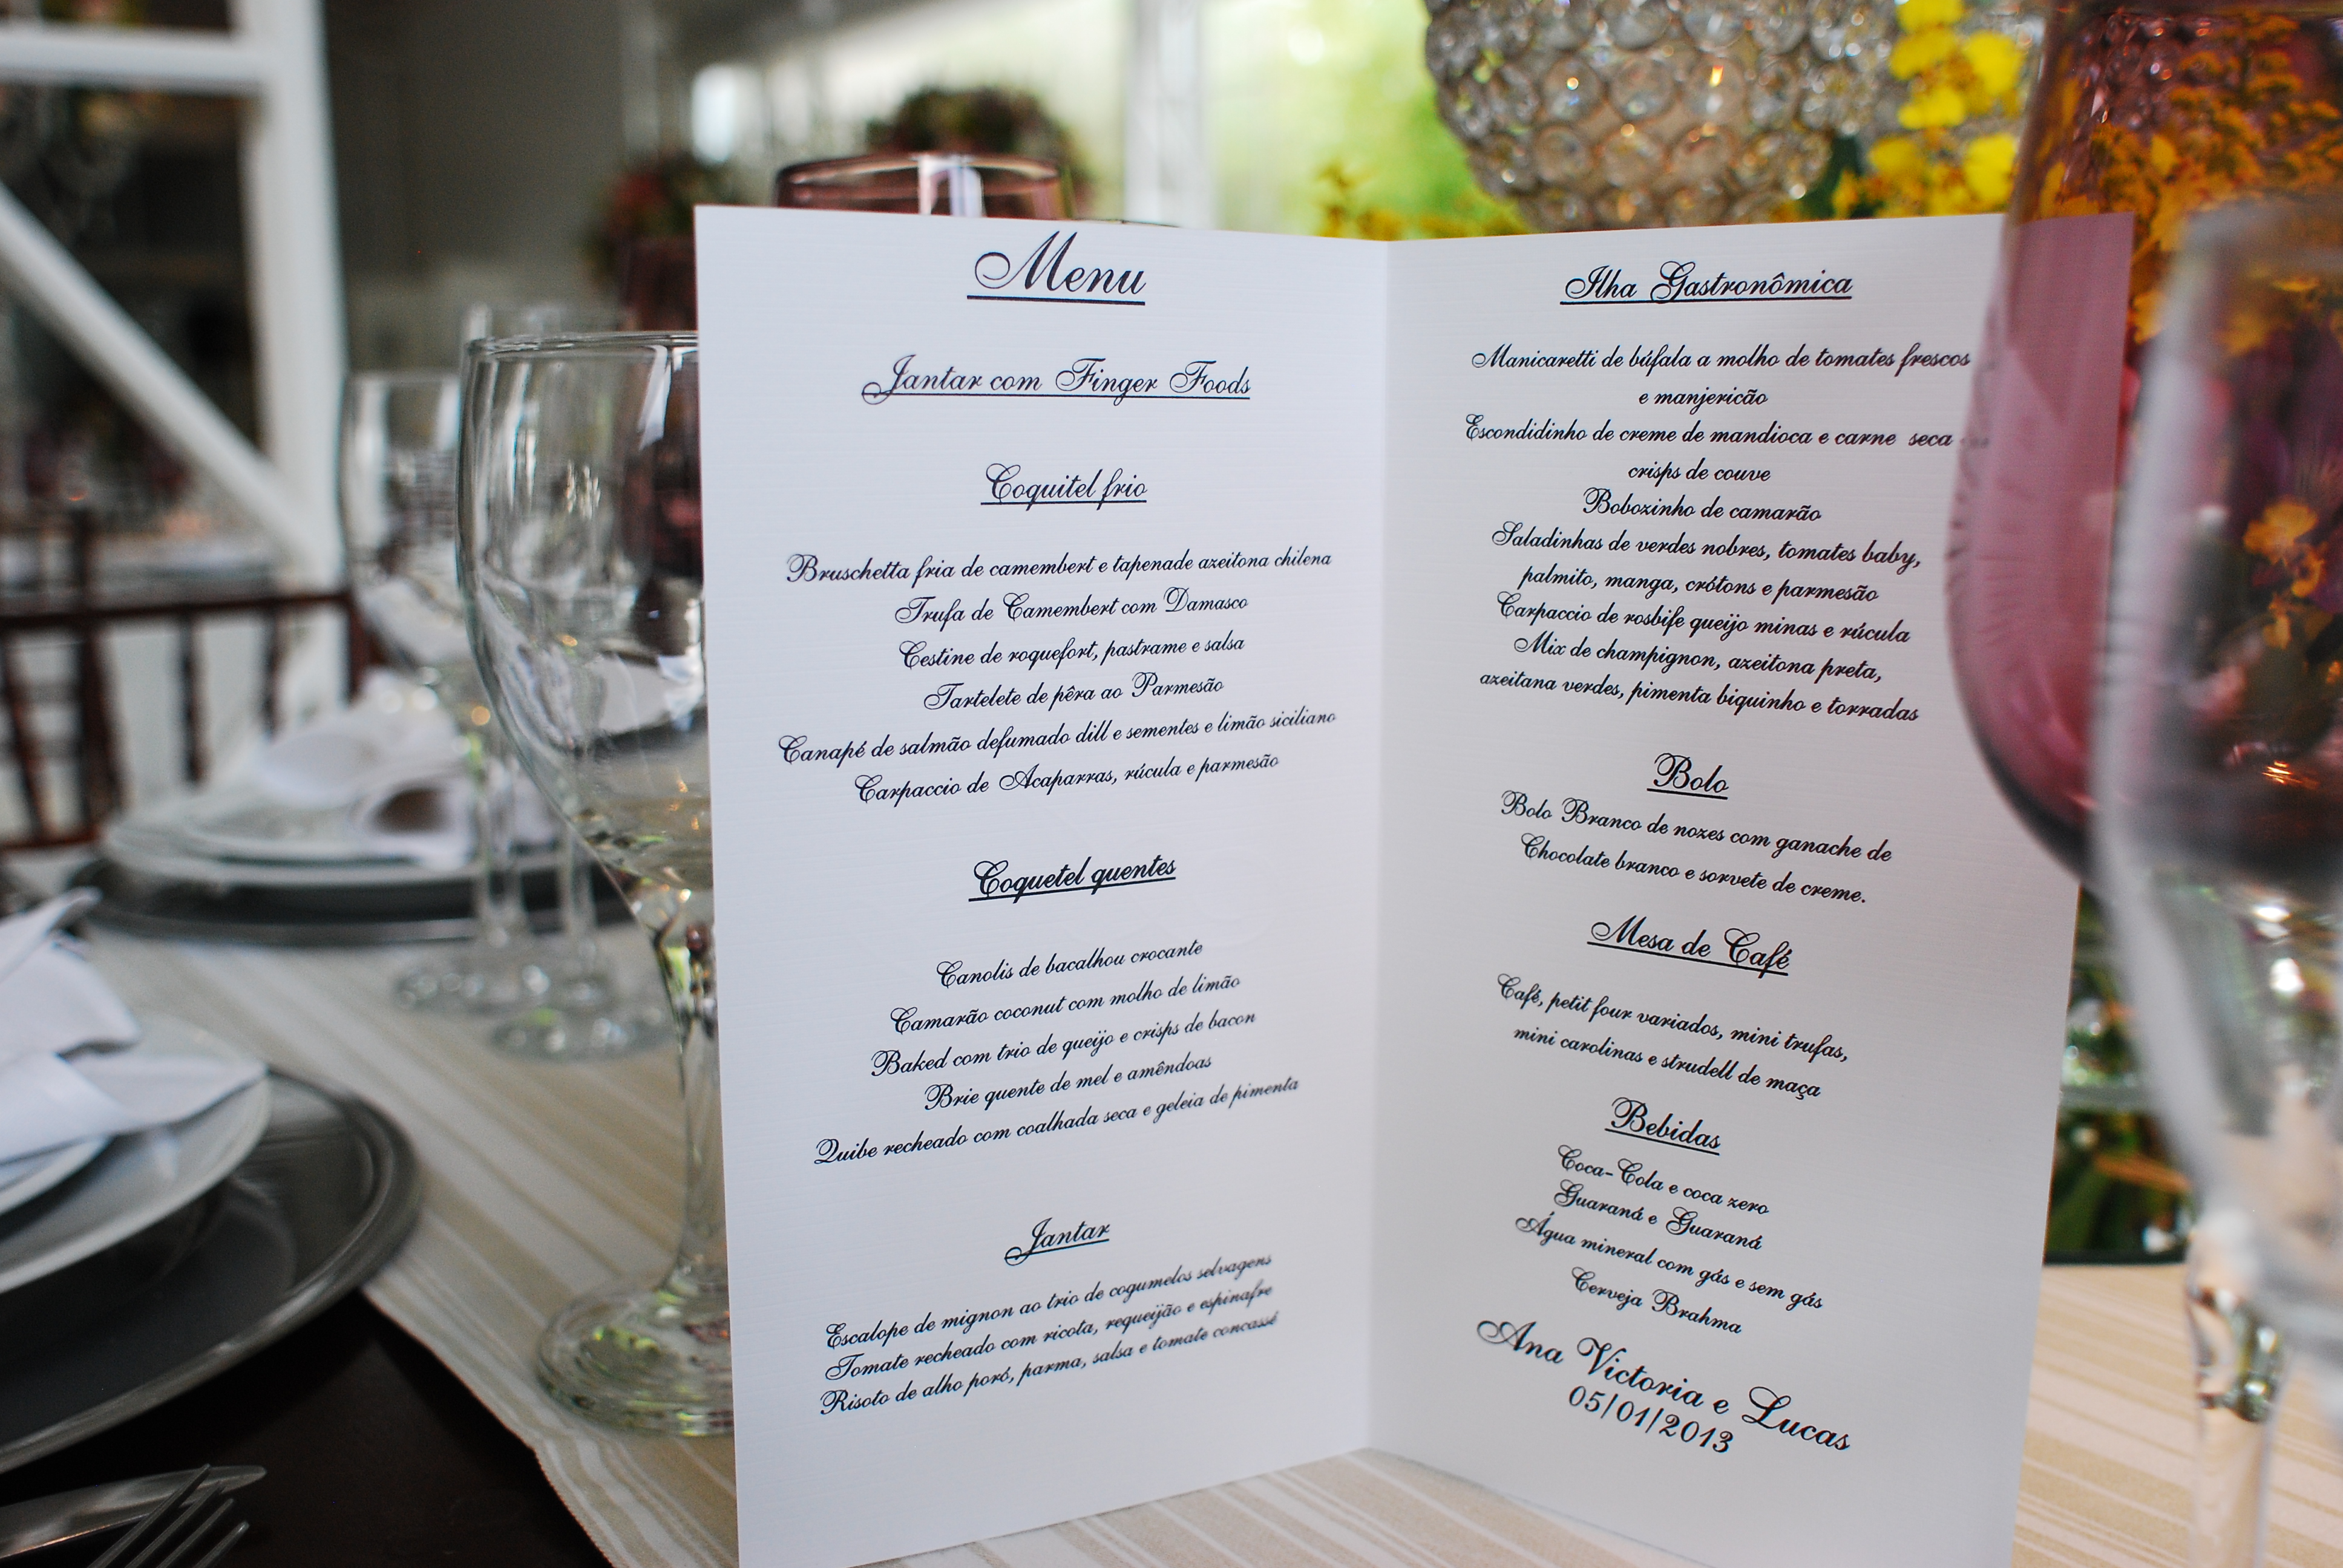 Menu
Jantar com Finger Foods
Coquitel frio
Bruschetta fria de camembert e tapenade azeitona chilena
Trufa de Camembert com Damasco
Cestine de roquefort, pastrame e salsa
Tartelete de pêra ao Parmesão
Canapé de salmão defumado dill e sementes e limão siciliano
Carpaccio de Acaparras, rúcula e parmesão
Coquetel quentes
Canolis de bacalhou crocante
Camarão coconut com molho de limão
Baked com trio de queijo e crisps de bacon
Brie quente de mel e amêndoas
Quibe recheado com coalhada seca e geleia de pimenta
Jantar
Escalope de mignon ao trio de cogumelos selvagens
Tomate recheado com ricota, requeijão e espinafre
Risoto de alho poró, parma, salsa e tomate concassé
Ilha Gastronômica
Manicaretti de búfala a molho de tomates frescos
e manjericão
Escondidinho de creme de mandioca e carne seca
crisps de couve
Bobozinho de camarão
Saladinhas de verdes nobres, tomates baby,
palmito, manga, crótons e parmesão
Carpaccio de rosbife queijo minas e rúcula
Mix de champignon, azeitona preta,
azeitana verdes, pimenta biquinho e torradas
Bolo
Bolo Branco de nozes com ganache de
Chocolate branco e sorvete de creme.
Mesa de Café
Café, petit four variados, mini trufas,
mini carolinas e strudell de maça
Bebidas
Coca-Cola e coca zero
Guaraná e Guaraná
Água mineral com gás e sem gás
Cerveja Brahma
Ana Victoria e Lucas
05/01/2013